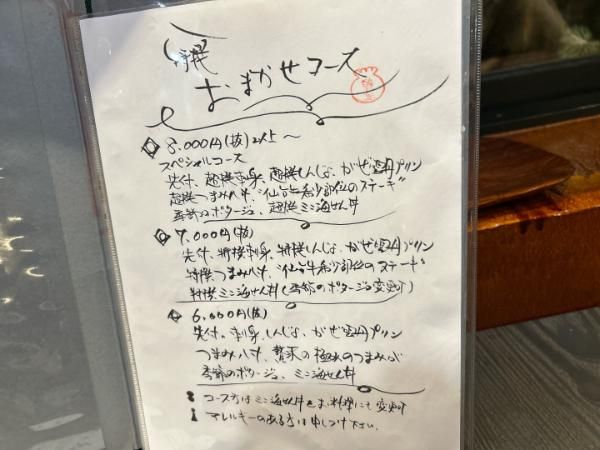 おまかせコース
8.000円(抜)2名〜
スペシャルコース
先付、超撰刺身、超撰しんじょ、がぜ雲丹プリン
超撰つまみ八寸、"仙台牛希少部位のステーキ"
季節のポタージュ、超撰ミニ海せん丼
7.000円(抜)
先付、特撰刺身、特撰しんじょ、がぜ雲丹プリン
特撰つまみ八寸、"仙台牛希少部位のステーキ"
特撰ミニ海せん丼(季節のポタージュ変更可)
6.000円(抜)
先付、刺身、しんじょ、がぜ雲丹プリン
つまみ八寸、贅沢の極みのつまみ
季節のポタージュ、ミニ海せん丼
コース方はミニ海せん丼をお料理にも変更可
アレルギーのある方は申しつけ下さい。